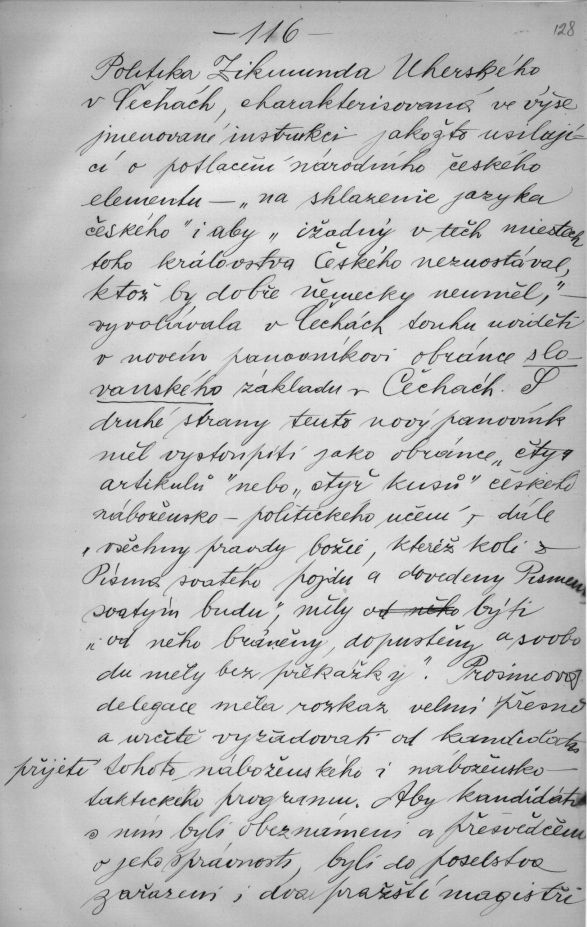 — 116 — 128
Politika Zikmunda Uherského
v Čechách, charakterisovaná ve výše
jmenované instrukci jakožto usilují-
cí o potlačení národního českého
elementu — „na shlazenie jazyka
českého" i aby „ižádný v těch miestech
toho královstva Českého nezuostával,
ktož by dobře německy neuměl," —
vyvolávala v Čechách touhu uviděti
v novém panovníkovi obránce slo-
vanského základu v Čechách. S
druhé strany tento nový panovník
měl vystoupiti jako obránce „čtyř
artikulů" nebo „čtyř kusů" českého
nábožensko - politického učení, dále
„všechny pravdy božie, kteréž koli z
Písma svatého pojdu a dovedeny Písmem
svatým budu", měly od něho býti
„od něho bráněny, dopuštěny a svobo
du měly bez překážky". Prosincová
delegace měla rozkaz velmi přesně
a určitě vyžadovati od kandidáta
přijetí tohoto náboženského i nábožensko-
taktického programu. Aby kandidáti
s ním byli obeznámeni a přesvědčeni
o jeho správnosti, byli do poselstva
zařazeni i dva pražští magistři